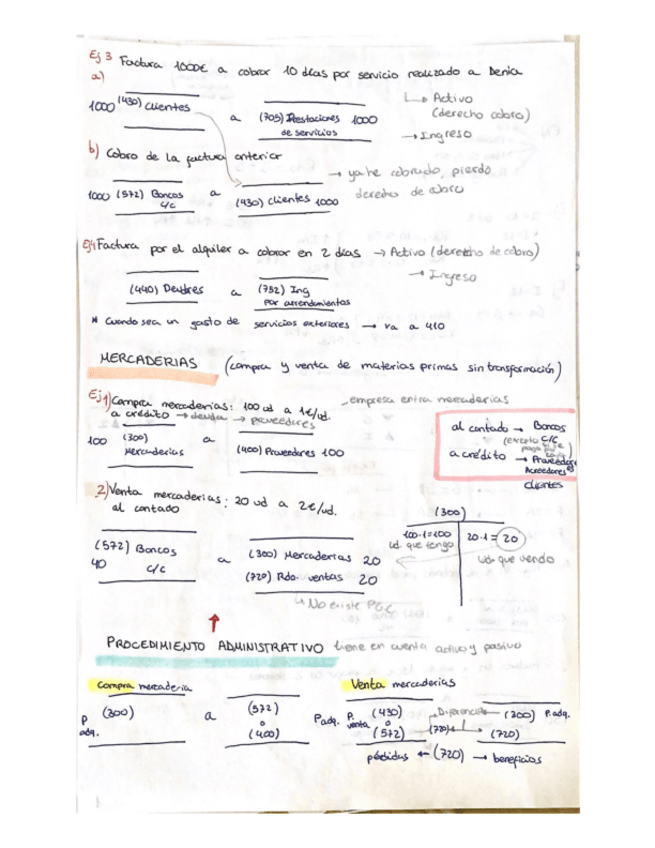 Ej 3 Factura 1000€ a cobrar 10 días por servicio realizado a Denia
a)
1000 (430) Clientes a (705) Prestaciones 1000
de servicios
↳ Activo
(derecho cobro)
→ Ingreso
b) Cobro de la factura anterior
1000 (572) Bancos a (430) Clientes 1000
c/c
→ ya he cobrado, pierdo
derecho de cobro
Ej4 Factura por el alquiler a cobrar en 2 días → Activo (derecho de cobro)
→ Ingreso
(440) Deudores a (752) Ing
por arrendamientos
* Cuando sea un gasto de servicios exteriores → va a 410
MERCADERIAS (compra y venta de materias primas sin transformación)
Ej 1) Compra mercaderias: 100 ud a 1€/ud.
empresa entra mercaderias
a crédito → deuda → proveedores
100 (300) a (400) Proveedores 100
Mercaderias
al contado → Bancos
c/c
a crédito → Proveedores
Acreedores
Clientes
2) Venta mercaderias: 20 ud a 2€/ud.
al contado
(300)
100·1=100
ud. que tengo
20·1=20
ud. que vendo
(572) Bancos a (300) Mercaderias 20
40 c/c
(720) Rdo. ventas 20
↳ No existe PGC
↑
PROCEDIMIENTO ADMINISTRATIVO tiene en cuenta activo y pasivo
Compra mercaderia
P. adq. (300) a (572)
o
(400)
Venta mercaderias
P. adq. P. venta (430) Diferencia (300) P. adq.
o
(572) (720) (720)
pérdidas ← (720) → beneficios